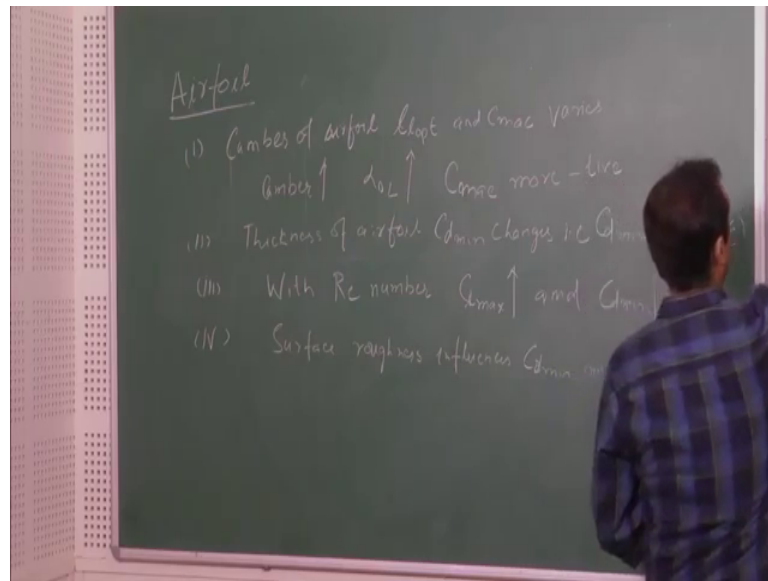 Airfoil
(I) Camber of airfoil Clopt and Cmac varies
Camber ↑ α0L ↑ Cmac more -tive
(II) Thickness of airfoil Cdmin changes i.e Cdmin
(III) With Re number Clmax ↑ and Cdmin
(IV) Surface roughness influences Cdmin